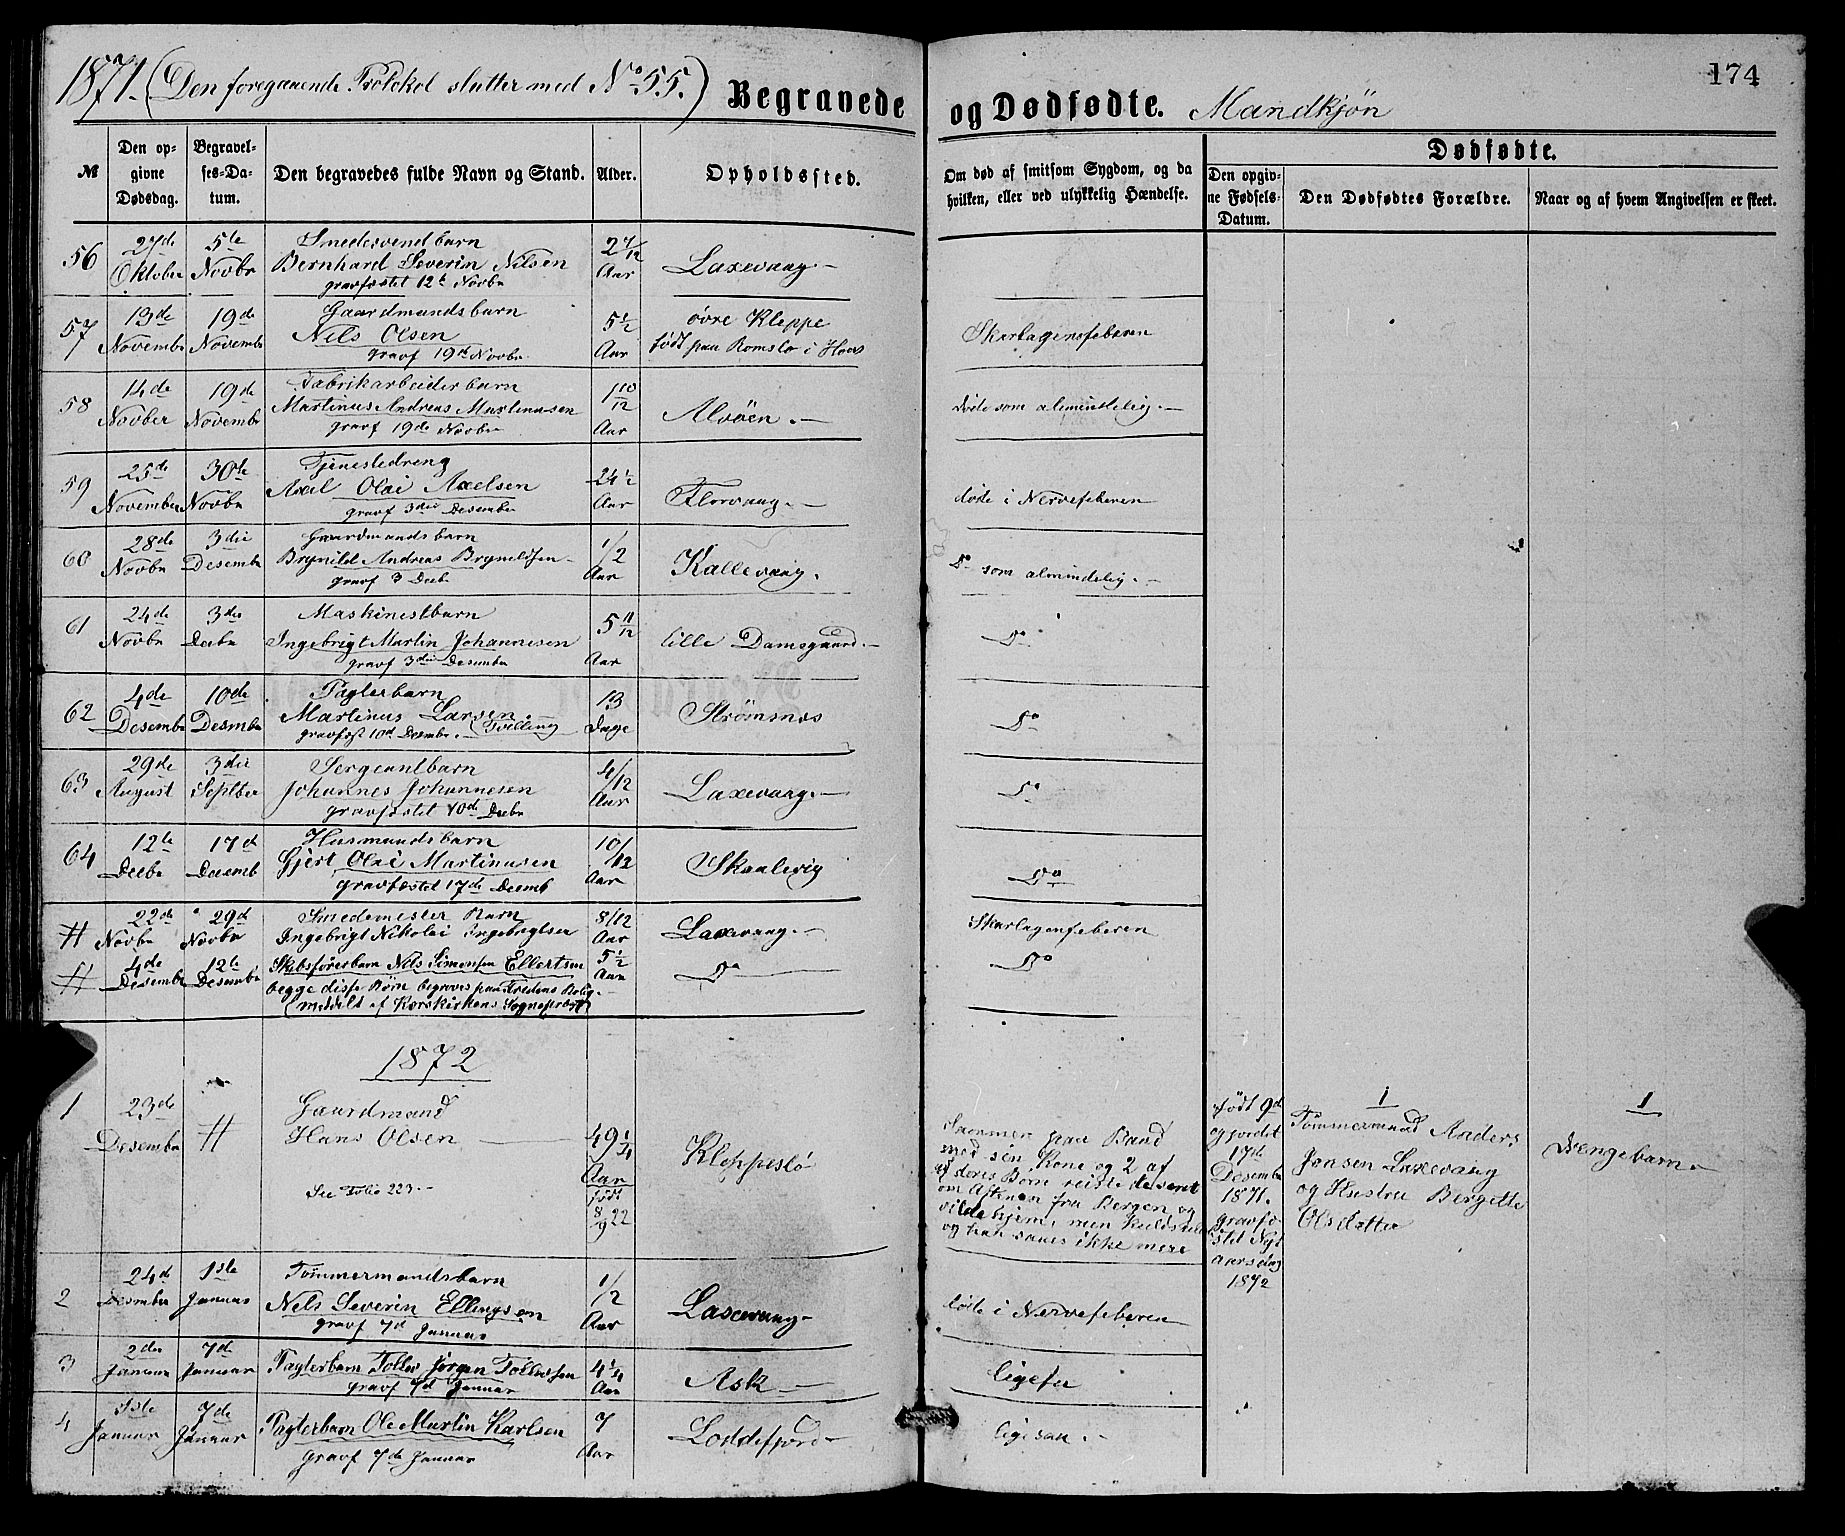 1871. (Den foregaaende Protokol slutter med No 55.) Begravede og Dødfødte. Mandkjøn 174
№
Den opgivne Dødsdag.
Begravelses-Datum.
Den begravedes fulde Navn og Stand.
Alder.
Opholdssted.
Om død af smitsom Sygdom, og da hvilken, eller ved ulykkelig Hændelse.
Dødfødte.
Den opgivne Fødsels-Datum.
Den Dødfødtes Forældre.
Naar og af hvem Angivelsen er skeet.
56 27de Oktober 5te Novbr Smedesvendbarn 2 7/12 Aar Laxevaag
Bernhard Severin Nilsen
gravfæstet 12te Novbr
57 13de Novembr 19de Novembr Gaardmandsbarn 5 1/2 Aar øvre Kleppe Skarlagensfeberen
Nils Olsen født paa Romslo i Haus
gravf 19de Novbr
58 14de Novber 19de Novembr Fabrikarbeiderbarn 1 10/12 Aar Alvøen døde som almindelig
Martinus Andreas Martinussen
gravf 19de Novbr
59 25de November 30te Novbr Tjenestedreng 24 1/2 Aar Florvaag døde i Nervefeberen
Axel Olai Axelsen
gravf 3die Desembr
60 28de Novbr 3die Desembr Gaardmandsbarn 1/2 Aar Kallevaag Do som almindelig
Brynild Andreas Brynildsen
gravf 3 Decb
61 24de Novbr 3die Decbr Maskinestbarn 5 11/12 Aar lille Damsgaard Do
Ingebrigt Martin Johannesen
gravf 3die Desembr
62 4de Desembr 10de Desmbr Pagterbarn 13 Dage Strømsnes Do
Martinus Larsen (Tvilling)
gravfæst 10d Desmbr
63 29de August 3die Septber Sergeantbarn 4/12 Aar Laxevaag Do
Johannes Johannesen
gravfæstet 10de Decbr
64 12te Decbr 17d Decemb Husmandsbarn 10/12 Aar Skaalevig Do
Gjert Olai Martinusen
gravfæstet 17de Decmb
# 22de Novbr 29d Novbr Smedemester Barn 8/12 Aar Laxevaag Skarlagensfeberen
Ingebrigt Nikolai Ingebrigtsen
# 4de Desembr 12te Desembr Skibsførerbarn Nils Simonsen Ellertsen 5 1/2 Aar Do Do
begge disse Børn begroves paa Fredens Bolig
(meddelt af Korskirkens Sogneprest)
1872
1 23de Desembr # Gaardmand 49 1/4 Aar Kleppestø
Hans Olsen født 8/9 22
See Folio 223
Sammen paa Baad
med sin Kone og 2 af
deres Børn reiste de sent
om Aftenen fra Bergen og
vilde hjem, men
og han saaes ikke mere
født 9d
og jordet
17de
Desembr
1871.
gravfæ-
stet Nyt
aarsdag
1872
1
Tømmermand Anders
Jonsen Laxevaag
og Hustru Bergette
Olsdatter
1
Drengebarn
2 24d Desember 1ste Januar Tømmermandsbarn 1/2 Aar Laxevaag døde i Nervefeberen
Nels Severin Ellingsen
gravf 7d Januar
3 2den Januar 7d Januar Pagterbarn Tollev Jørgen Tollevsen 4 1/4 Aar Ask ligesaa
gravf 7d Januar
4 1ste Januar 7de Januar Pagterbarn Ole Martin Karlsen 7 Aar Loddefjord ligesaa
gravf 7de Januar